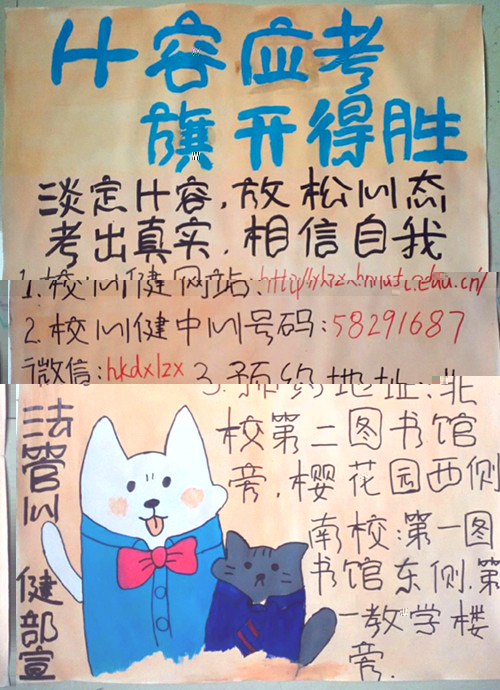 从容应考
旗开得胜
淡定从容，放松心态
考出真实，相信自我
1.校心健网站:
2.校心健中心号码:58291687
微信:hkdxlzx 3.预约地址:北
校第二图书馆
旁,樱花园西侧
南校:第一图
书馆东侧.第
一教学楼
旁.
法管心健部宣